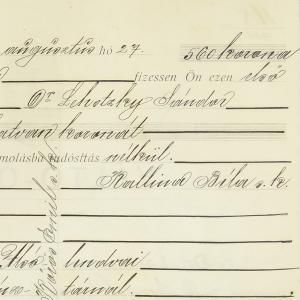 augusztus hó 27. 560 korona
fizessen Ön ezen első
Dr Lehotzky Sándor
hatvan koronát
számolásba tudósítás nélkül.
Kallina Béla s. k.
Alsó lendvai
tarnál.